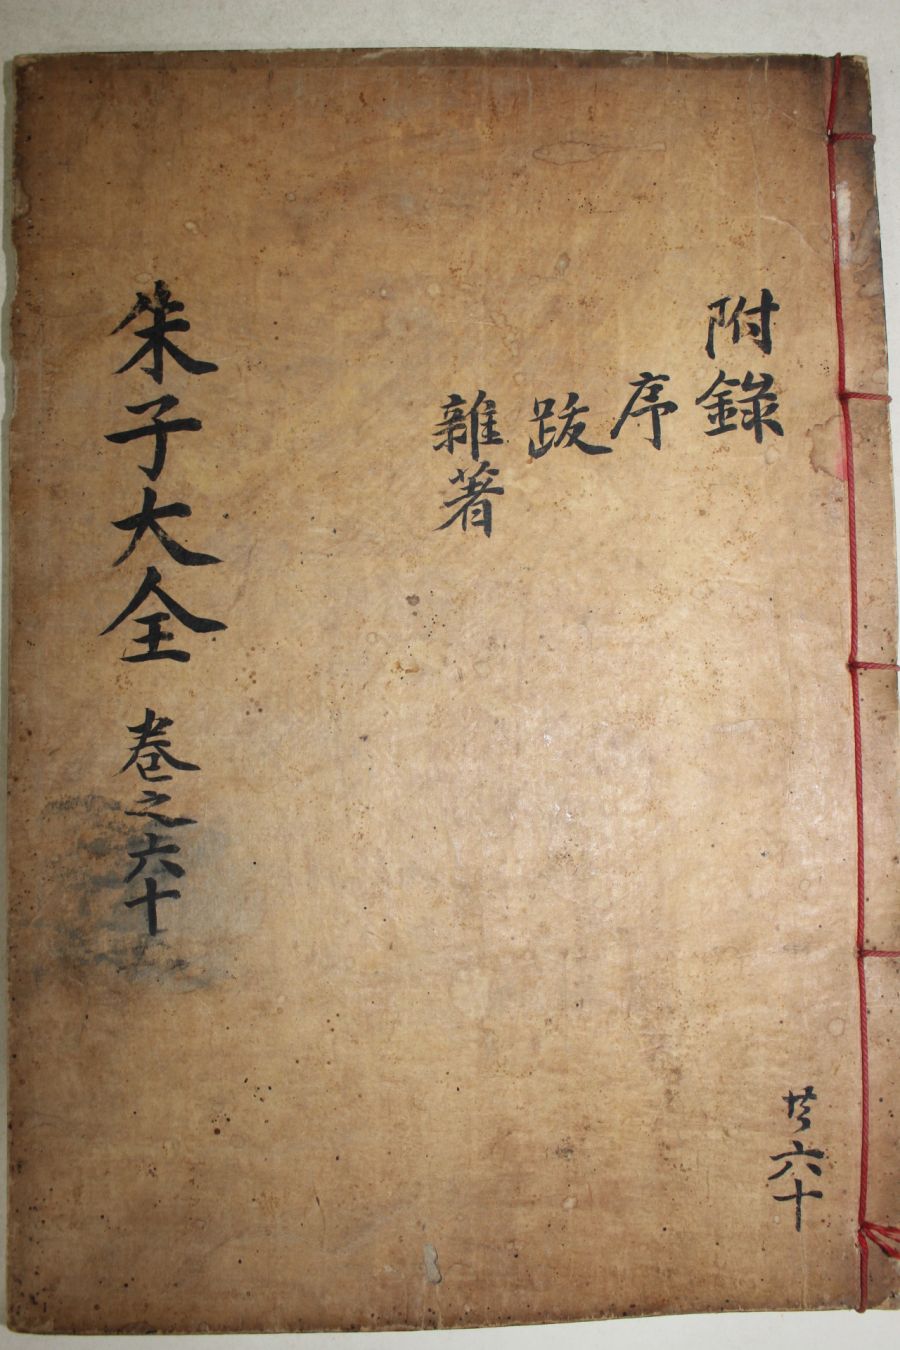 附錄
序
跋
雜著
朱子大全 卷之六十
共六十